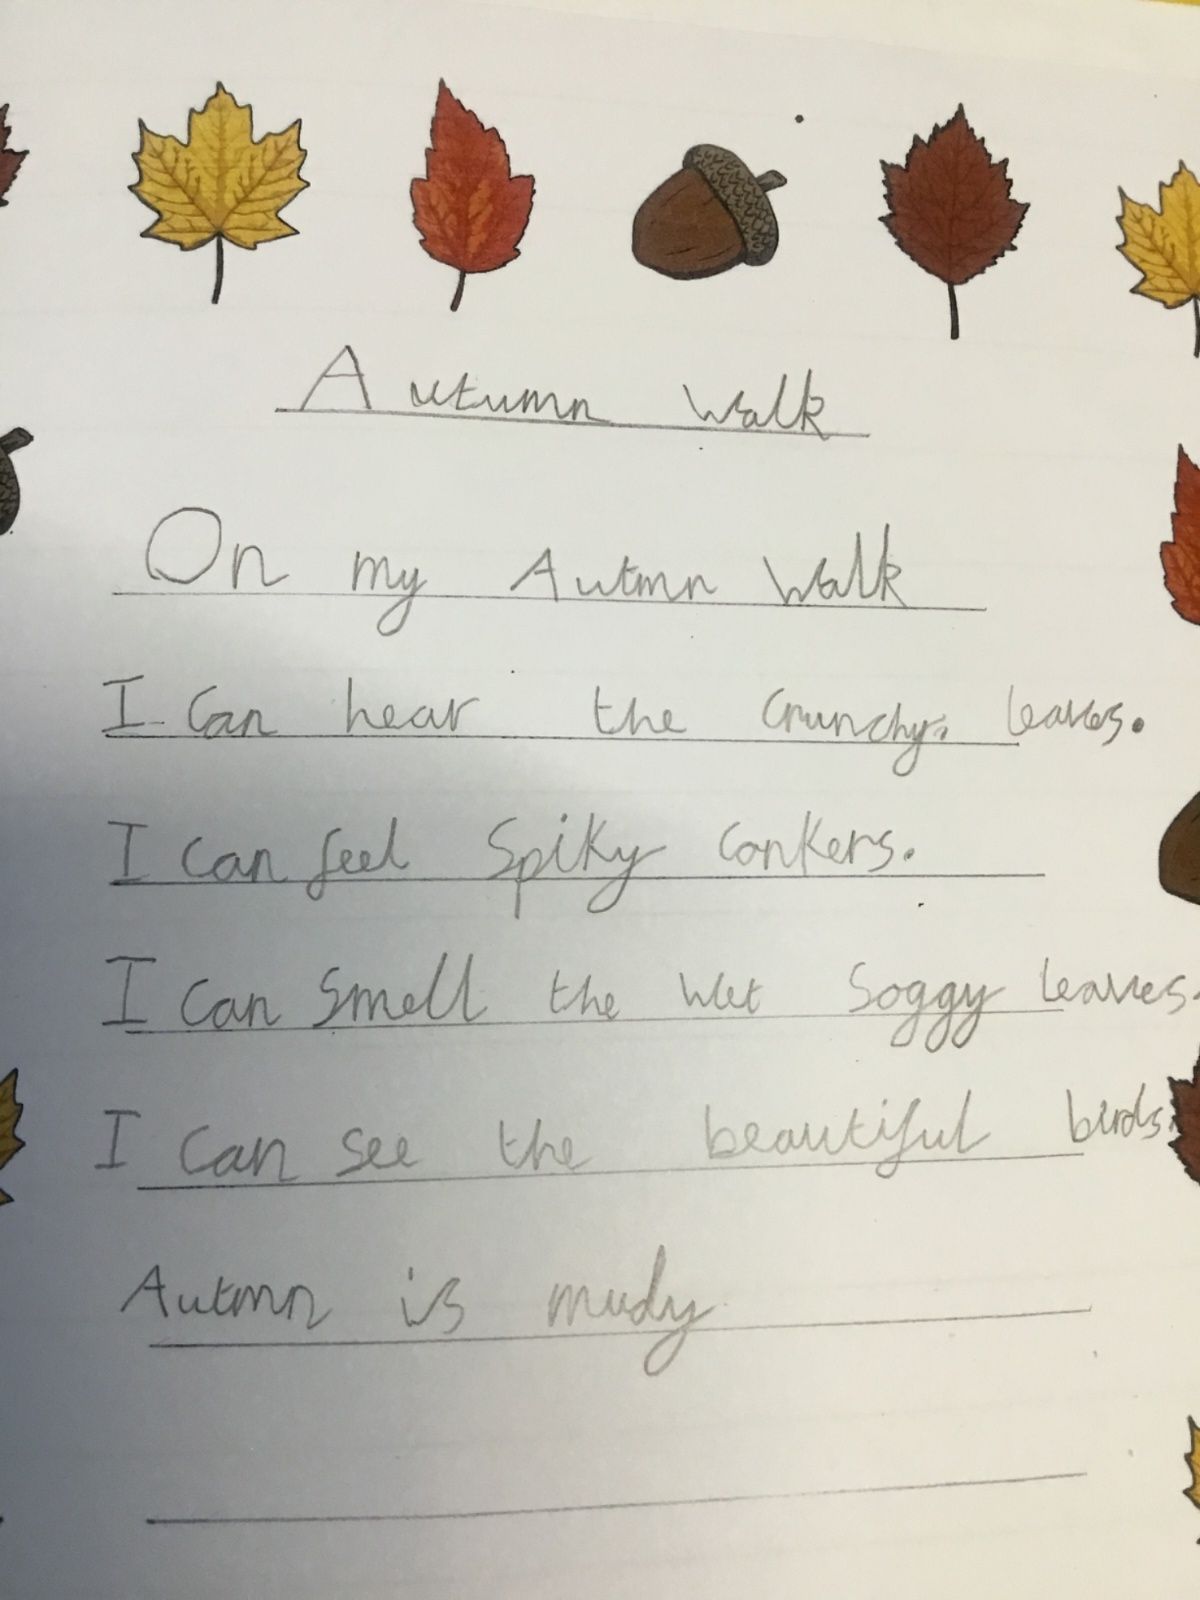 Autumn walk
On my Autmn walk
I can hear the crunchy. leaves.
I can feel spiky conkers.
I can smell the wet soggy leaves.
I can see the beautiful birds.
Autmn is mudy